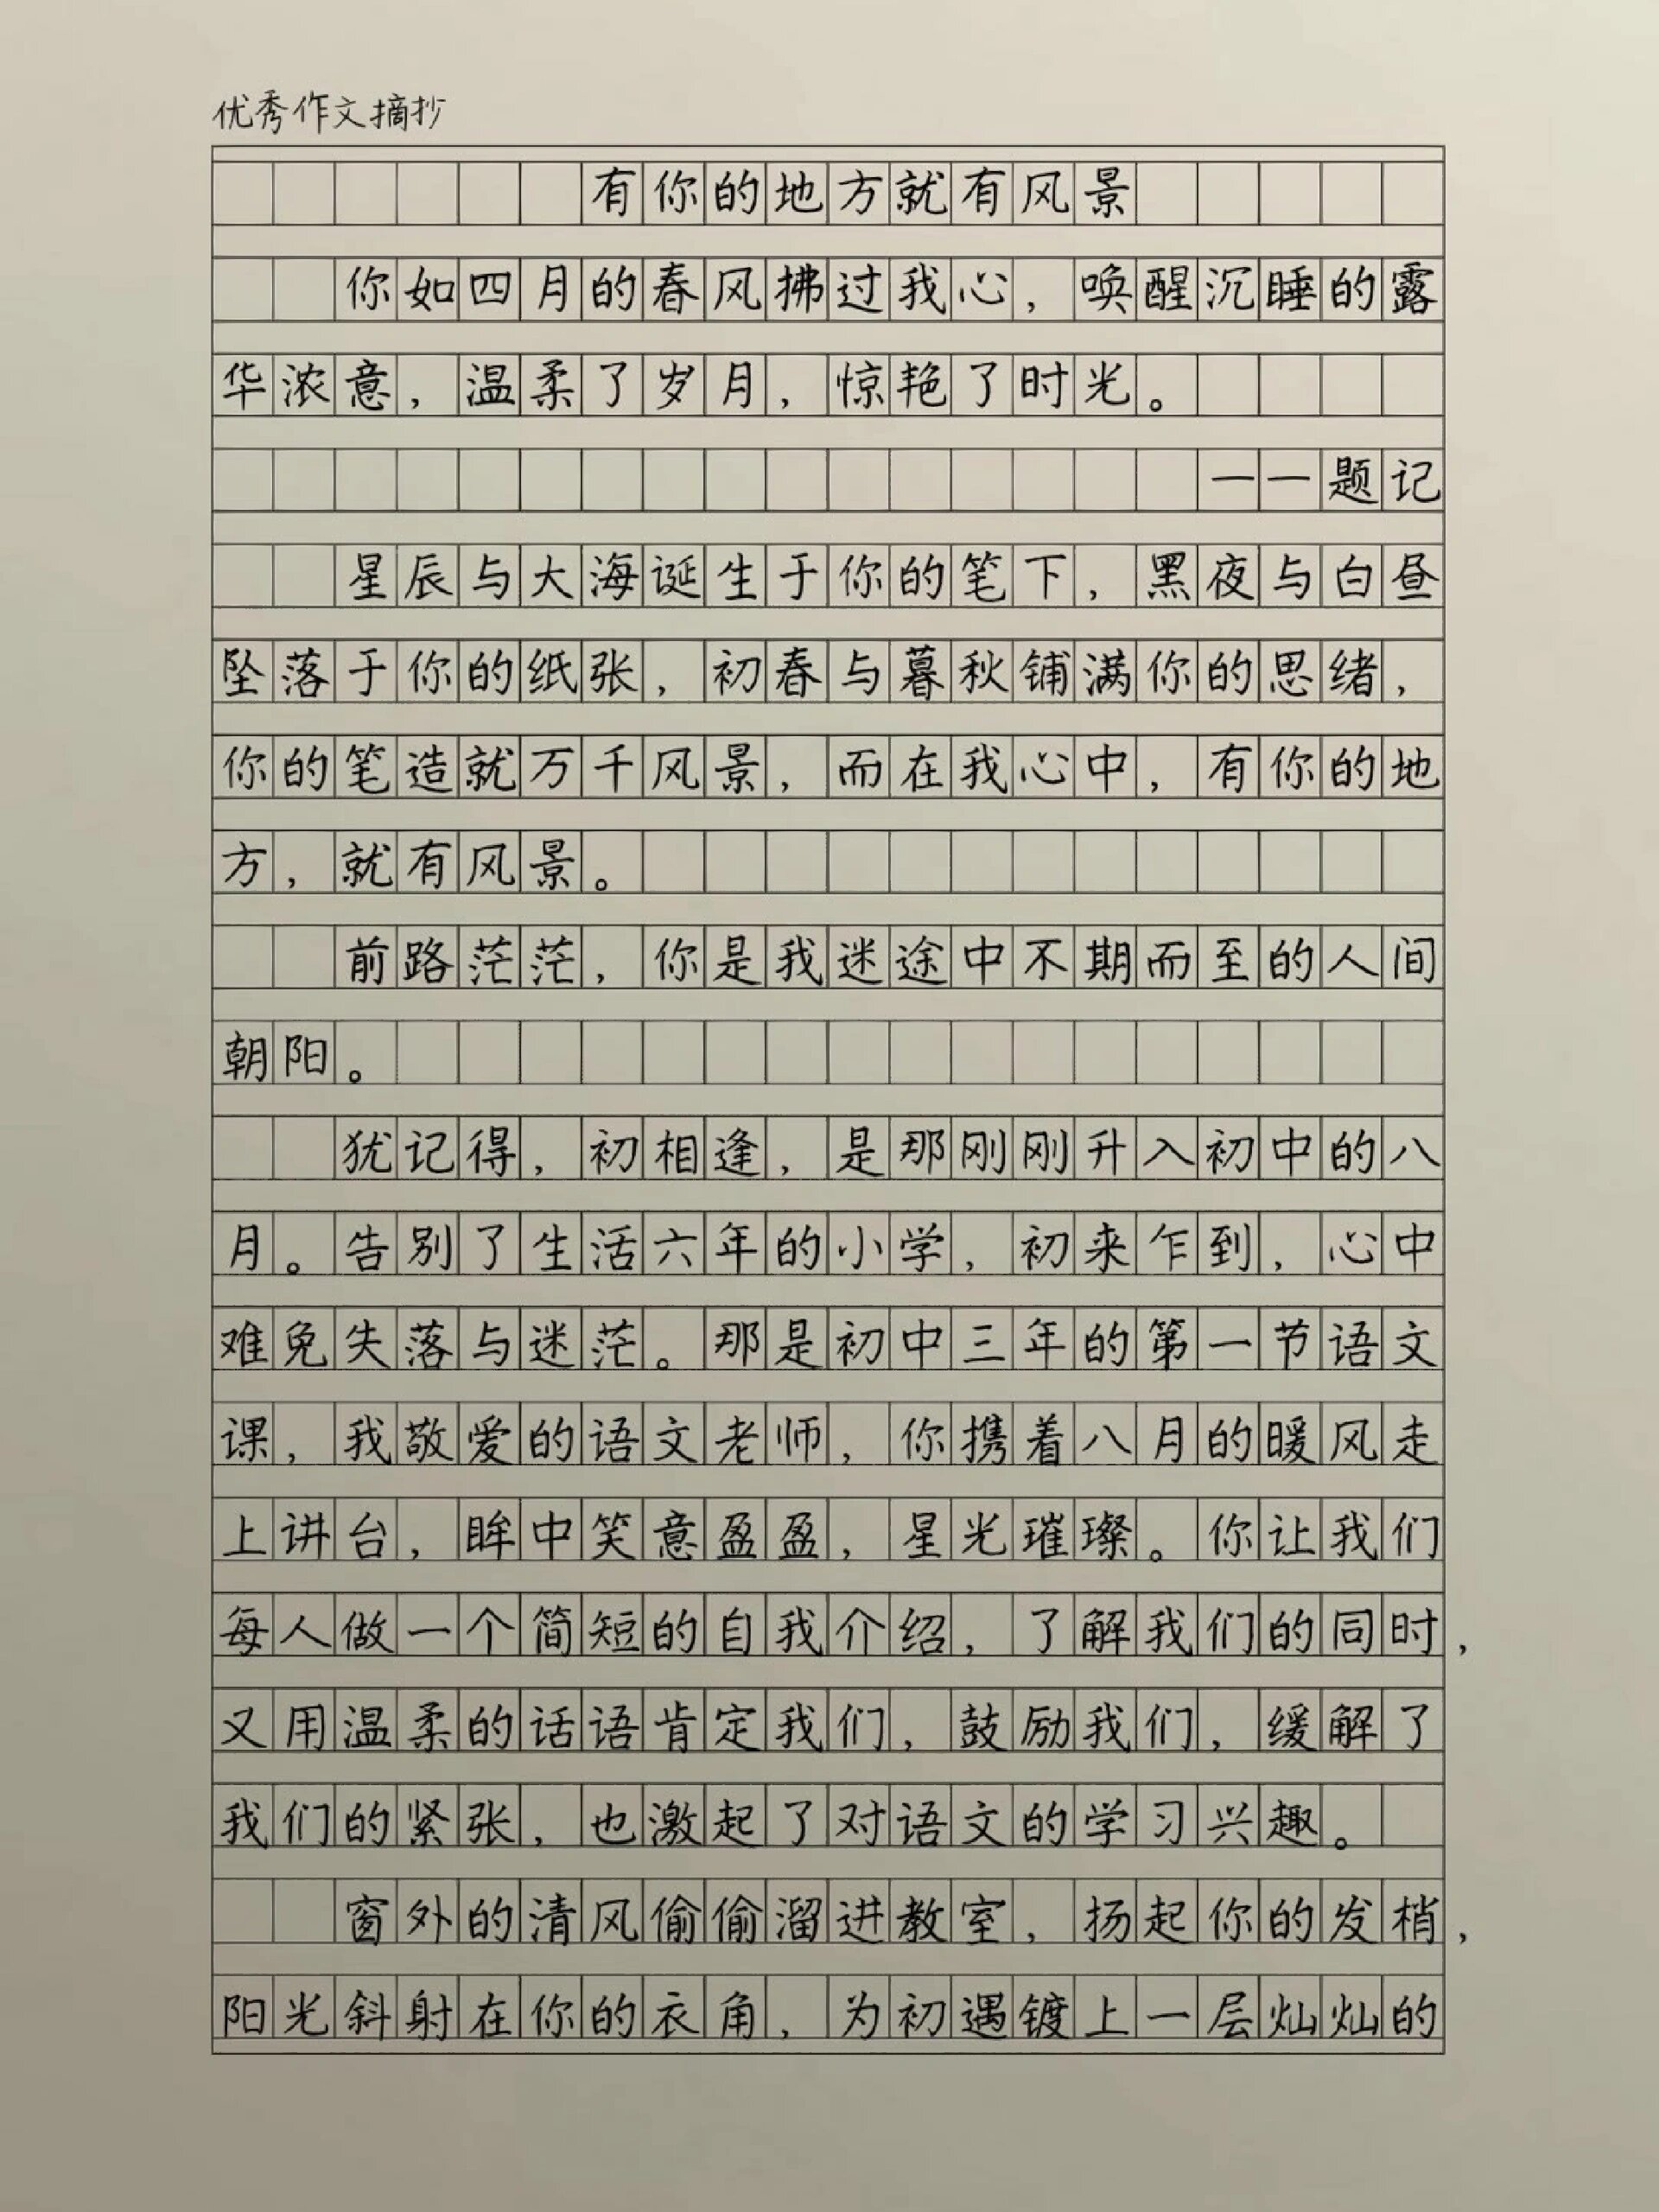 优秀作文摘抄
有你的地方就有风景
你如四月的春风拂过我心，唤醒沉睡的露
华浓意，温柔了岁月，惊艳了时光。
——题记
星辰与大海诞生于你的笔下，黑夜与白昼
坠落于你的纸张，初春与暮秋铺满你的思绪，
你的笔造就万千风景，而在我心中，有你的地
方，就有风景。
前路茫茫，你是我迷途中不期而至的人间
朝阳。
犹记得，初相逢，是那刚刚升入初中的八
月。告别了生活六年的小学，初来乍到，心中
难免失落与迷茫。那是初中三年的第一节语文
课，我敬爱的语文老师，你携着八月的暖风走
上讲台，眸中笑意盈盈，星光璀璨。你让我们
每人做一个简短的自我介绍，了解我们的同时，
又用温柔的话语肯定我们，鼓励我们，缓解了
我们的紧张，也激起了对语文的学习兴趣。
窗外的清风偷偷溜进教室，扬起你的发梢，
阳光斜射在你的衣角，为初遇镀上一层灿灿的